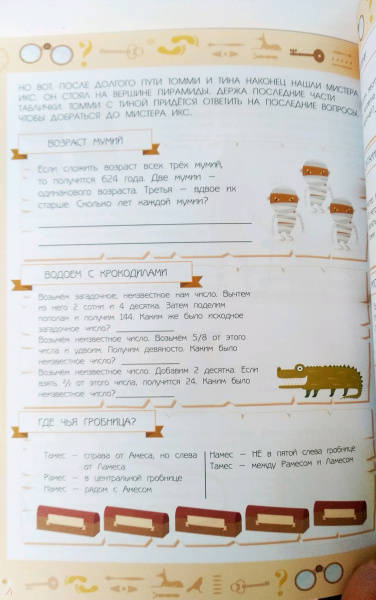 НО ВОТ, ПОСЛЕ ДОЛГОГО ПУТИ ТОММИ И ТИНА НАКОНЕЦ НАШЛИ МИСТЕРА
ИКС. ОН СТОЯЛ НА ВЕРШИНЕ ПИРАМИДЫ, ДЕРЖА ПОСЛЕДНИЕ ЧАСТИ
ТАБЛИЧКИ. ТОММИ С ТИНОЙ ПРИДЁТСЯ ОТВЕТИТЬ НА ПОСЛЕДНИЕ ВОПРОСЫ,
ЧТОБЫ ДОБРАТЬСЯ ДО МИСТЕРА ИКС.
ВОЗРАСТ МУМИЙ
Если сложить возраст всех трёх мумий,
то получится 624 года. Две мумии –
одинакового возраста. Третья – вдвое их
старше. Сколько лет каждой мумии?
ВОДОЕМ С КРОКОДИЛАМИ
Возьмём загадочное, неизвестное нам число. Вычтем
из него 2 сотни и 4 десятка. Затем поделим
пополам и получим 144. Каким же было исходное
загадочное число?
Возьмём неизвестное число. Возьмём 5/8 от этого
числа и удвоим. Получим девяносто. Каким было
неизвестное число?
Возьмём неизвестное число. Добавим 2 десятка. Если
взять ⅔ от этого числа, получится 24. Каким было
неизвестное число?
ГДЕ ЧЬЯ ГРОБНИЦА?
Тамес – справа от Амеса, но слева
от Ламеса
Рамес – в центральной гробнице
Намес – рядом с Амесом
Намес – НЕ в пятой слева гробнице
Тамес – между Рамесом и Ламесом